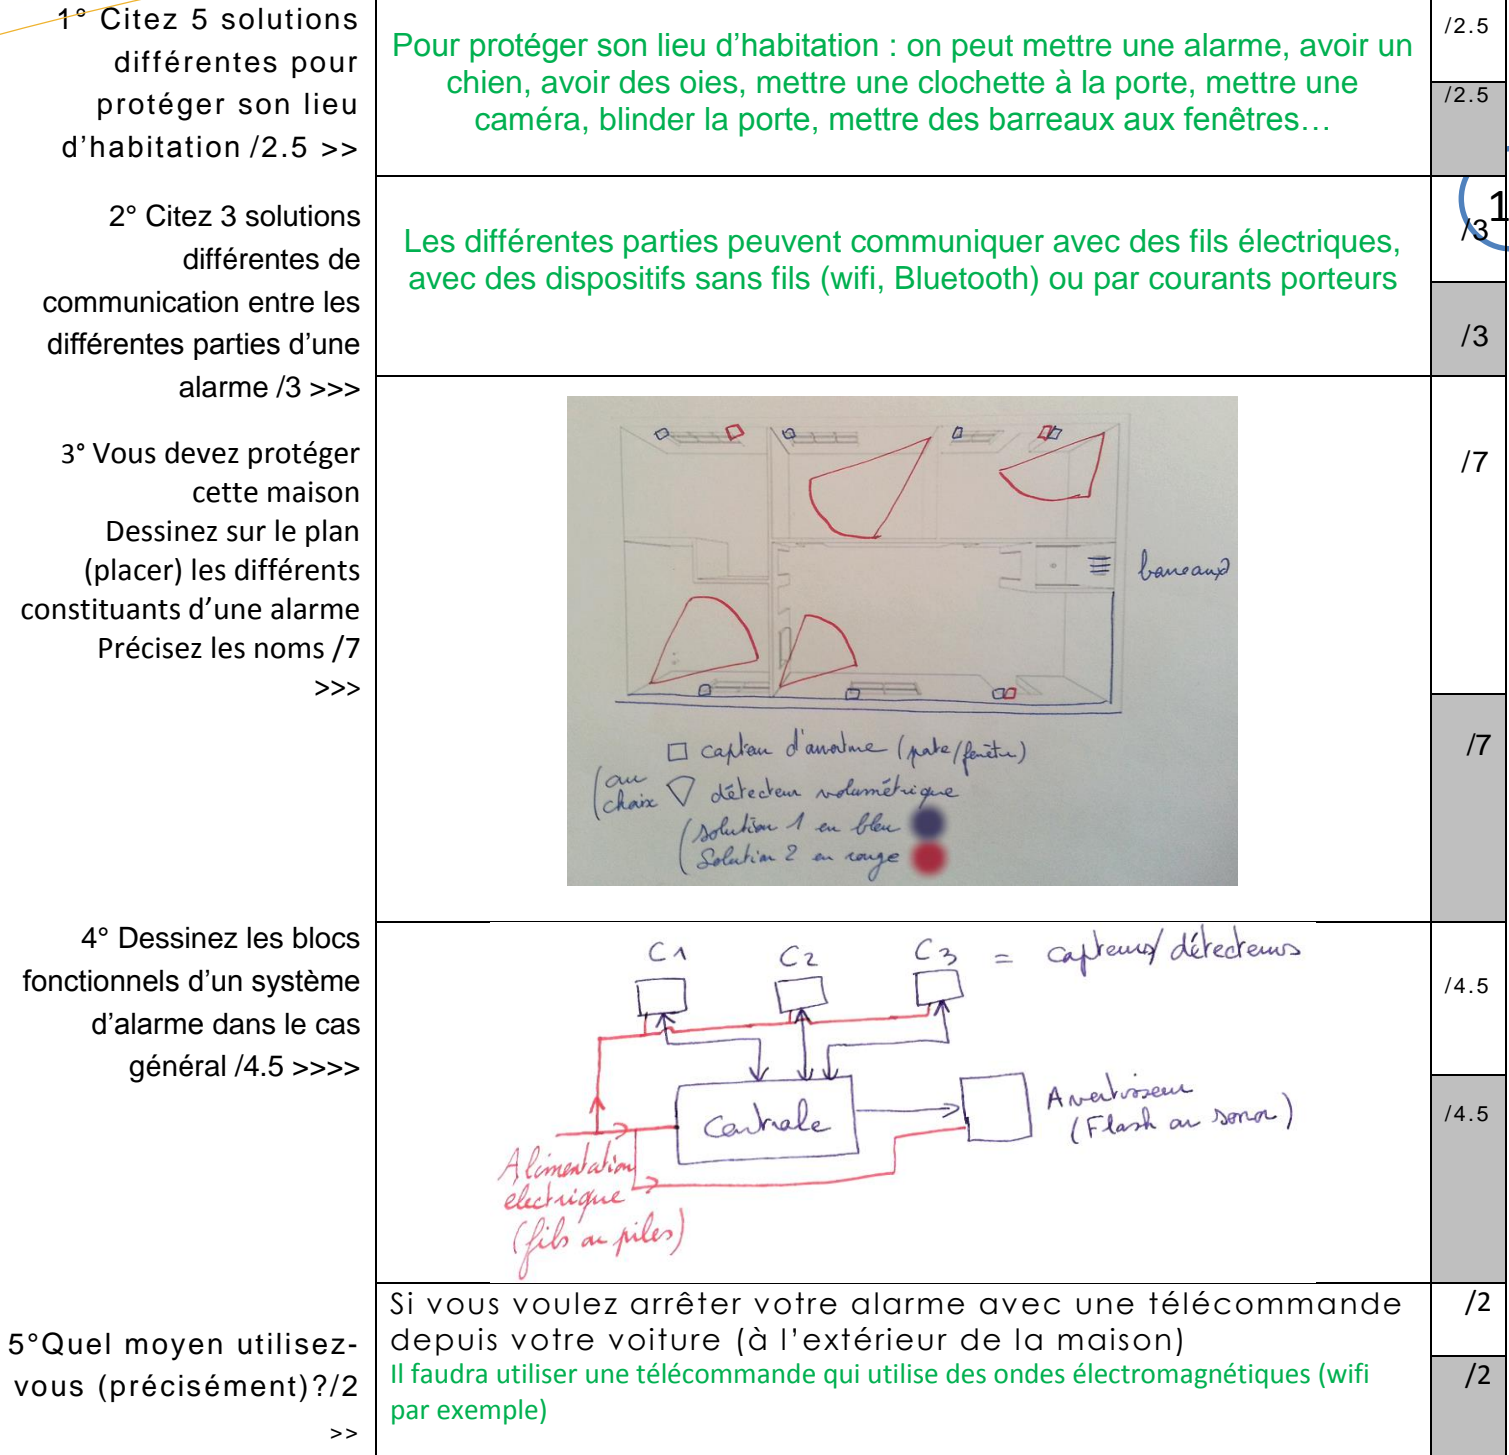 1° Citez 5 solutions
différentes pour
protéger son lieu
d’habitation /2.5 >>
Pour protéger son lieu d’habitation : on peut mettre une alarme, avoir un
chien, avoir des oies, mettre une clochette à la porte, mettre une
caméra, blinder la porte, mettre des barreaux aux fenêtres…
/2.5
/2.5
1
2° Citez 3 solutions
différentes de
communication entre les
différentes parties d’une
alarme /3 >>>
Les différentes parties peuvent communiquer avec des fils électriques,
avec des dispositifs sans fils (wifi, Bluetooth) ou par courants porteurs
/3
/3
3° Vous devez protéger
cette maison
Dessinez sur le plan
(placer) les différents
constituants d’une alarme
Précisez les noms /7
>>>
barreaux
capteur d'ouverture (porte/fenêtre)
(au
choix
détecteur volumétrique
(solution 1 en bleu
(Solution 2 en rouge
/7
/7
4° Dessinez les blocs
fonctionnels d’un système
d’alarme dans le cas
général /4.5 >>>>
C1 C2 C3 = capteurs/détecteurs
Centrale
Avertisseur
(Flash ou sonor)
Alimentation
electrique
(fils ou piles)
/4.5
/4.5
5°Quel moyen utilisez-
vous (précisément)?/2
>>
Si vous voulez arrêter votre alarme avec une télécommande
depuis votre voiture (à l’extérieur de la maison)
Il faudra utiliser une télécommande qui utilise des ondes électromagnétiques (wifi
par exemple)
/2
/2